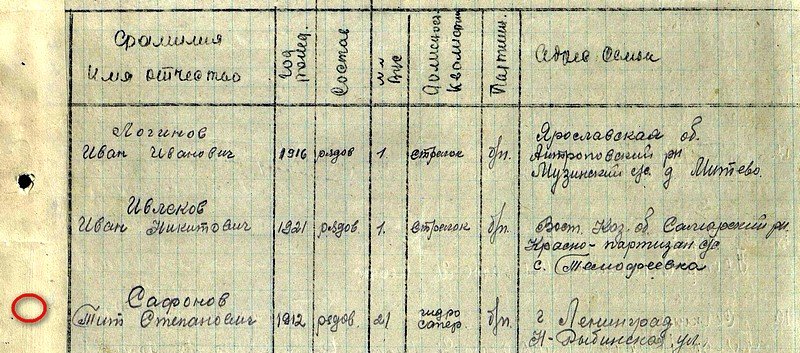 Фамилия
Имя отчество
Год рожд.
Состав
Должност. Квалифик.
Партийн.
Адрес
Логинов
Иван Иванович 1916 рядов 1. стрелок б/п.
Ярославская об.
Антроповский рн
Музинский с/с д Митево.
Ивлеков
Иван Никитович 1921 рядов 1. стрелок б/п.
Вост. Каз. об. Самарский рн.
Красно-партизан с/с
с. Тимофеевка
Сафонов
Тит Степанович 1912 рядов. 21 гидро сапер. б/п.
г Ленинград
Н-Рыбинская ул.